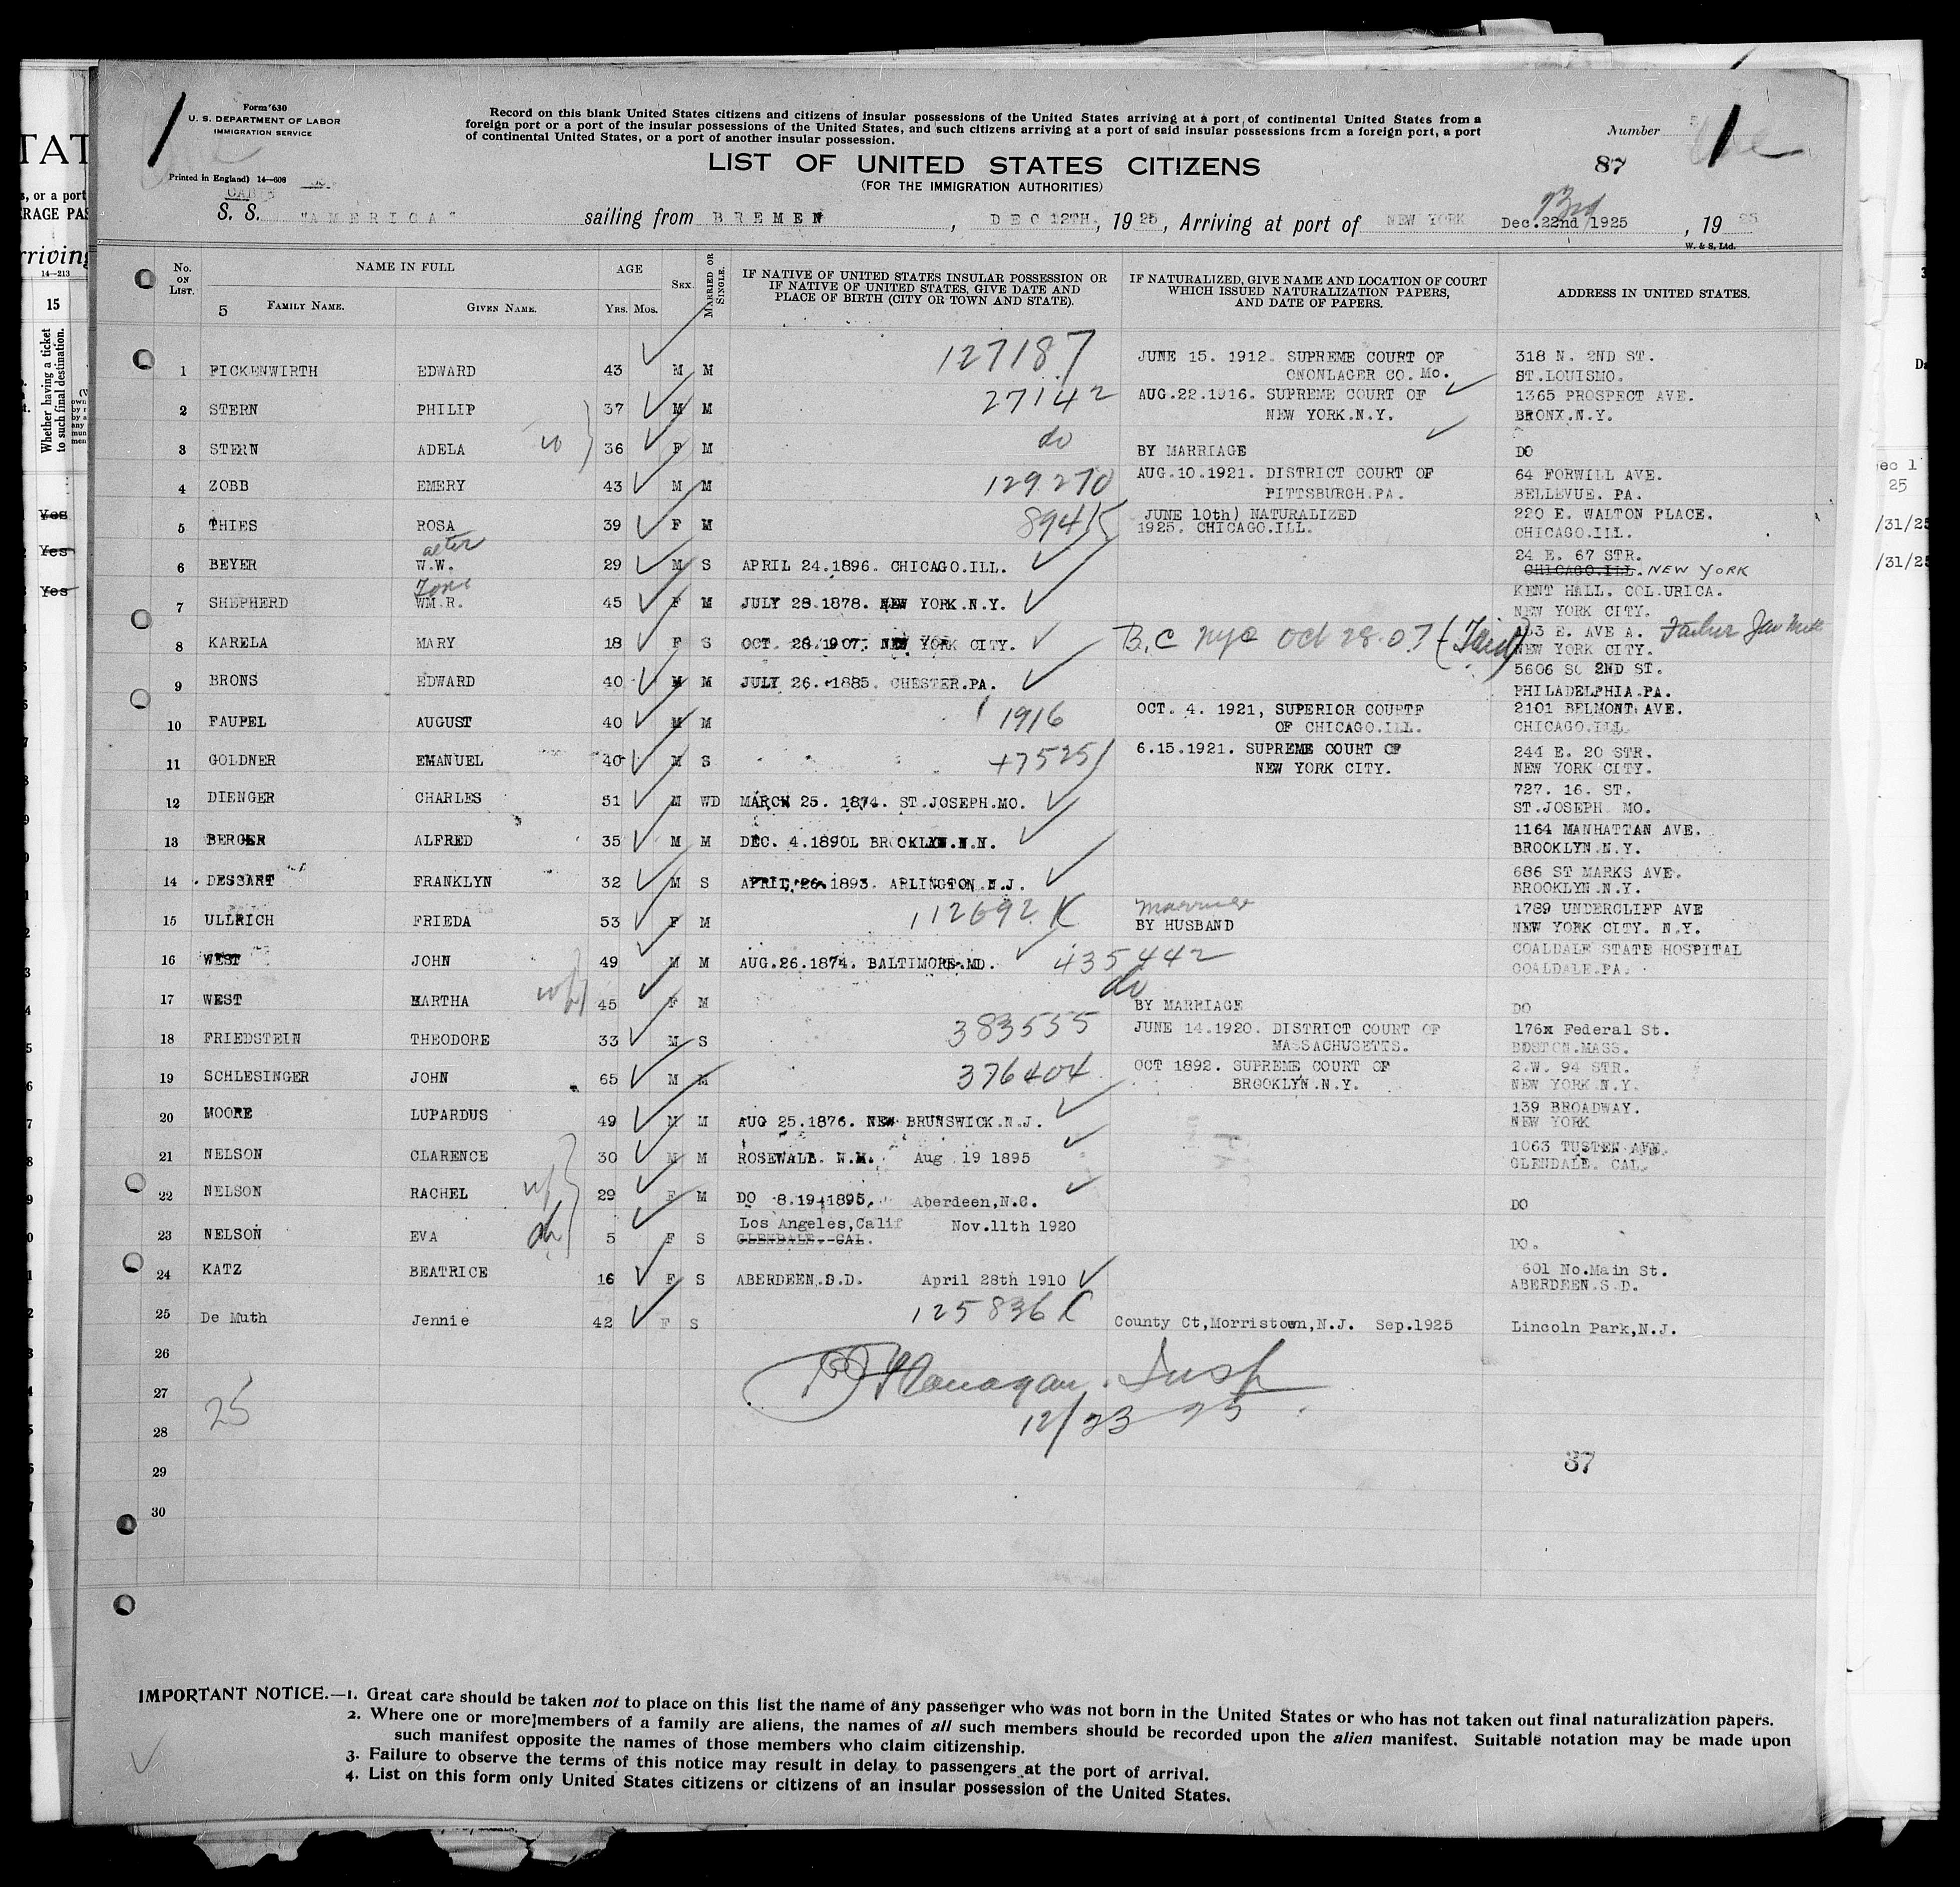 Form 630
U. S. DEPARTMENT OF LABOR
IMMIGRATION SERVICE
Printed in England) 14—608
CABIN
Record on this blank United States citizens and citizens of insular possessions of the United States arriving at a port of continental United States from a
foreign port or a port of the insular possessions of the United States, and such citizens arriving at a port of said insular possessions from a foreign port, a port
of continental United States, or a port of another insular possession.
Number
LIST OF UNITED STATES CITIZENS
87
(FOR THE IMMIGRATION AUTHORITIES)
S. S. "AMERICA" sailing from BREMEN, DEC 12TH, 1925, Arriving at port of NEW YORK Dec. 22nd 1925, 1925
23rd
W. & S., Ltd.
No. ON LIST. NAME IN FULL AGE SEX. MARRIED OR SINGLE. IF NATIVE OF UNITED STATES INSULAR POSSESSION OR IF NATIVE OF UNITED STATES, GIVE DATE AND PLACE OF BIRTH (CITY OR TOWN AND STATE). IF NATURALIZED, GIVE NAME AND LOCATION OF COURT WHICH ISSUED NATURALIZATION PAPERS, AND DATE OF PAPERS. ADDRESS IN UNITED STATES.
5 FAMILY NAME. GIVEN NAME. Yrs. Mos.
1 FICKENWIRTH EDWARD 43 M M 127187 JUNE 15. 1912. SUPREME COURT OF ONONLAGER CO. Mo. 318 N. 2ND ST. ST.LOUISMO.
2 STERN PHILIP 37 M M 27142 AUG.22.1916. SUPREME COURT OF NEW YORK.N.Y. 1365 PROSPECT AVE. BRONX.N.Y.
3 STERN ADELA w 36 F M do BY MARRIAGE DO
4 ZOBB EMERY 43 M M 129270 AUG.10.1921. DISTRICT COURT OF PITTSBURGH.PA. 64 FORWILL AVE. BELLEVUE. PA.
5 THIES ROSA 39 F M 89415 JUNE 10th) NATURALIZED 1925. CHICAGO.ILL. 220 E. WALTON PLACE. CHICAGO.ILL.
6 BEYER W.W. alter 29 M S APRIL 24.1896. CHICAGO.ILL. 24 E. 67 STR. CHICAGO.ILL. NEW YORK
7 SHEPHERD WM.R. 45 F M JULY 28.1878. NEW YORK.N.Y. KENT HALL. COL.URICA. NEW YORK CITY.
8 KARELA MARY 18 F S OCT. 28.1907. NEW YORK CITY. B.C NYC Oct 28.07 153 E. AVE A. Father NEW YORK CITY.
9 BRONS EDWARD 40 M M JULY 26. 1885. CHESTER.PA. 5606 SO 2ND ST. PHILADELPHIA.PA.
10 FAUPEL AUGUST 40 M M 1916 OCT. 4. 1921, SUPERIOR COURTF OF CHICAGO.ILL. 2101 BELMONT AVE. CHICAGO.ILL
11 GOLDNER EMANUEL 40 M S 47525 6.15.1921. SUPREME COURT OF NEW YORK CITY. 244 E. 20 STR. NEW YORK CITY.
12 DIENGER CHARLES 51 M WD MARCH 25. 1874. ST.JOSEPH.MO. 727. 16. ST. ST.JOSEPH MO.
13 BERGER ALFRED 35 M M DEC. 4.1890L BROOKLYN.N.N. 1164 MANHATTAN AVE. BROOKLYN.N.Y.
14 DESSART FRANKLYN 32 M S APRIL 26.1893. ARLINGTON.N.J. 686 ST MARKS AVE. BROOKLYN.N.Y.
15 ULLRICH FRIEDA 53 F M 112692 K marriage BY HUSBAND 1789 UNDERCLIFF AVE NEW YORK CITY. N.Y.
16 WEST JOHN 49 M M AUG.26.1874. BALTIMORE.MD. 435442 COALDALE STATE HOSPITAL COALDALE.PA.
17 WEST MARTHA wf 45 F M do BY MARRIAGE DO
18 FRIEDSTEIN THEODORE 33 M S 383555 JUNE 14.1920. DISTRICT COURT OF MASSACHUSETTS. 176x Federal St. BOSTON.MASS.
19 SCHLESINGER JOHN 65 M M 376404 OCT 1892. SUPREME COURT OF BROOKLYN.N.Y. 2.W. 94 STR. NEW YORK.N.Y.
20 MOORE LUPARDUS 49 M M AUG 25.1876. NEW BRUNSWICK.N.J. 139 BROADWAY. NEW YORK
21 NELSON CLARENCE 30 M M ROSEWALL. N.M. Aug 19 1895 1063 TUSTEN AVE. GLENDALE. CAL.
22 NELSON RACHEL wf 29 F M DO 8.19.1895. Aberdeen,N.C. DO
23 NELSON EVA dh 5 F S Los Angeles,Calif Nov.11th 1920 GLENDALE. CAL. DO.
24 KATZ BEATRICE 16 F S ABERDEEN.S.D. April 28th 1910 601 No.Main St. ABERDEEN.S.D.
25 De Muth Jennie 42 F S 125836 K County Ct,Morristown,N.J. Sep.1925 Lincoln Park,N.J.
26
27
25
Flanagan. Insp
12/23 25
28
37
29
30
IMPORTANT NOTICE.—1. Great care should be taken not to place on this list the name of any passenger who was not born in the United States or who has not taken out final naturalization papers.
2. Where one or more members of a family are aliens, the names of all such members should be recorded upon the alien manifest. Suitable notation may be made upon
such manifest opposite the names of those members who claim citizenship.
3. Failure to observe the terms of this notice may result in delay to passengers at the port of arrival.
4. List on this form only United States citizens or citizens of an insular possession of the United States.
TAT
s, or a port
ERAGE PAS
rriving
14—213
15
Whether having a ticket
to such final destination.
Yes
Yes
Yes
ec 1
25
/31/25
/31/25